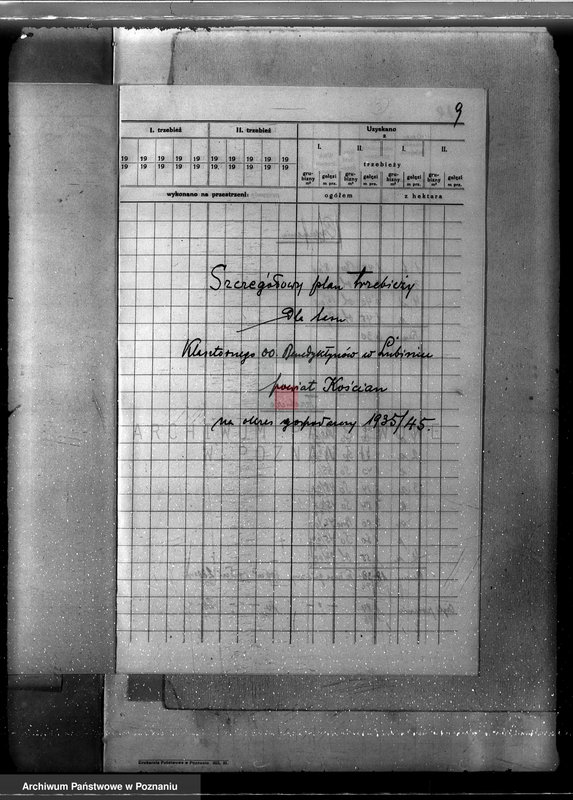 9
I. trzebież II. trzebież Uzyskano
z
I. II. I. II.
trzebieży
19 19 19 19 19 19 19 19 19 19
19 19 19 19 19 19 19 19 19 19
grubizny m³ gałęzi m prz. grubizny m³ gałęzi m prz. grubizny m³ gałęzi m prz. grubizny m³ gałęzi m prz.
wykonano na przestrzeni: ogółem z hektara
Szczegółowy plan trzebieży
Dla lasu
Klasztornego OO. Benedyktynów w Lubiniu
powiat Kościan
na okres gospodarczy 1935/45.
Drukarnia Państwowa w Poznaniu
Archiwum Państwowe w Poznaniu